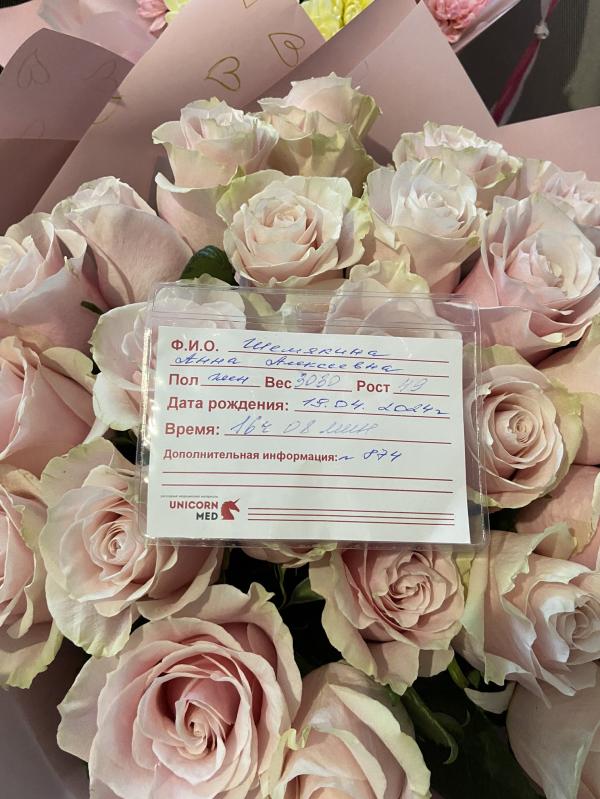 Ф.И.О. Шемякина
Анна Алексеевна
Пол жен Вес 3050 Рост 49
Дата рождения: 15.04. 2024г
Время: 16ч 08 мин
Дополнительная информация: № 874
расходные медицинские материалы
UNICORN
MED